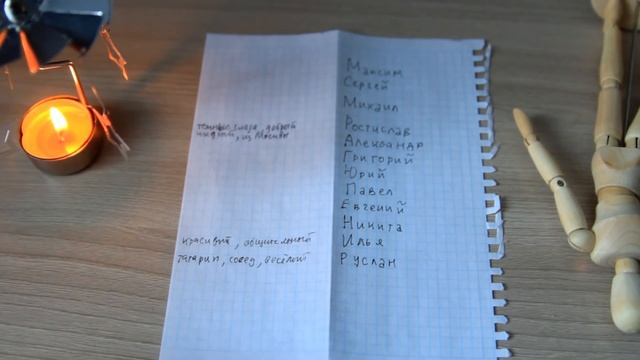 Максим
Сергей
Михаил
темные глаза, добрый Ростислав
щедрый, из Москвы
Александр
Григорий
Юрий
Павел
Евгений
Никита
красивый, общительный Илья
татарин, сосед, весёлый Руслан